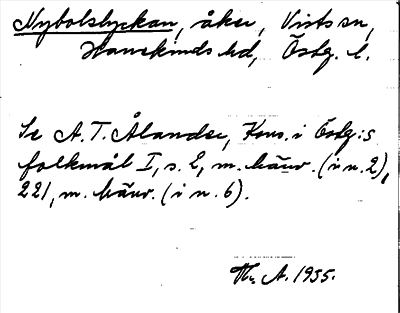 Nybolslyckan, åker, Vists sn,
Hanekinds hd, Östg. l.
Se A. T. Ålander, Kons. i Östg:s
folkmål I, s. 2, m. hänv. (i n. 2),
221, m. hänv. (i n. 6).
A. 1955.